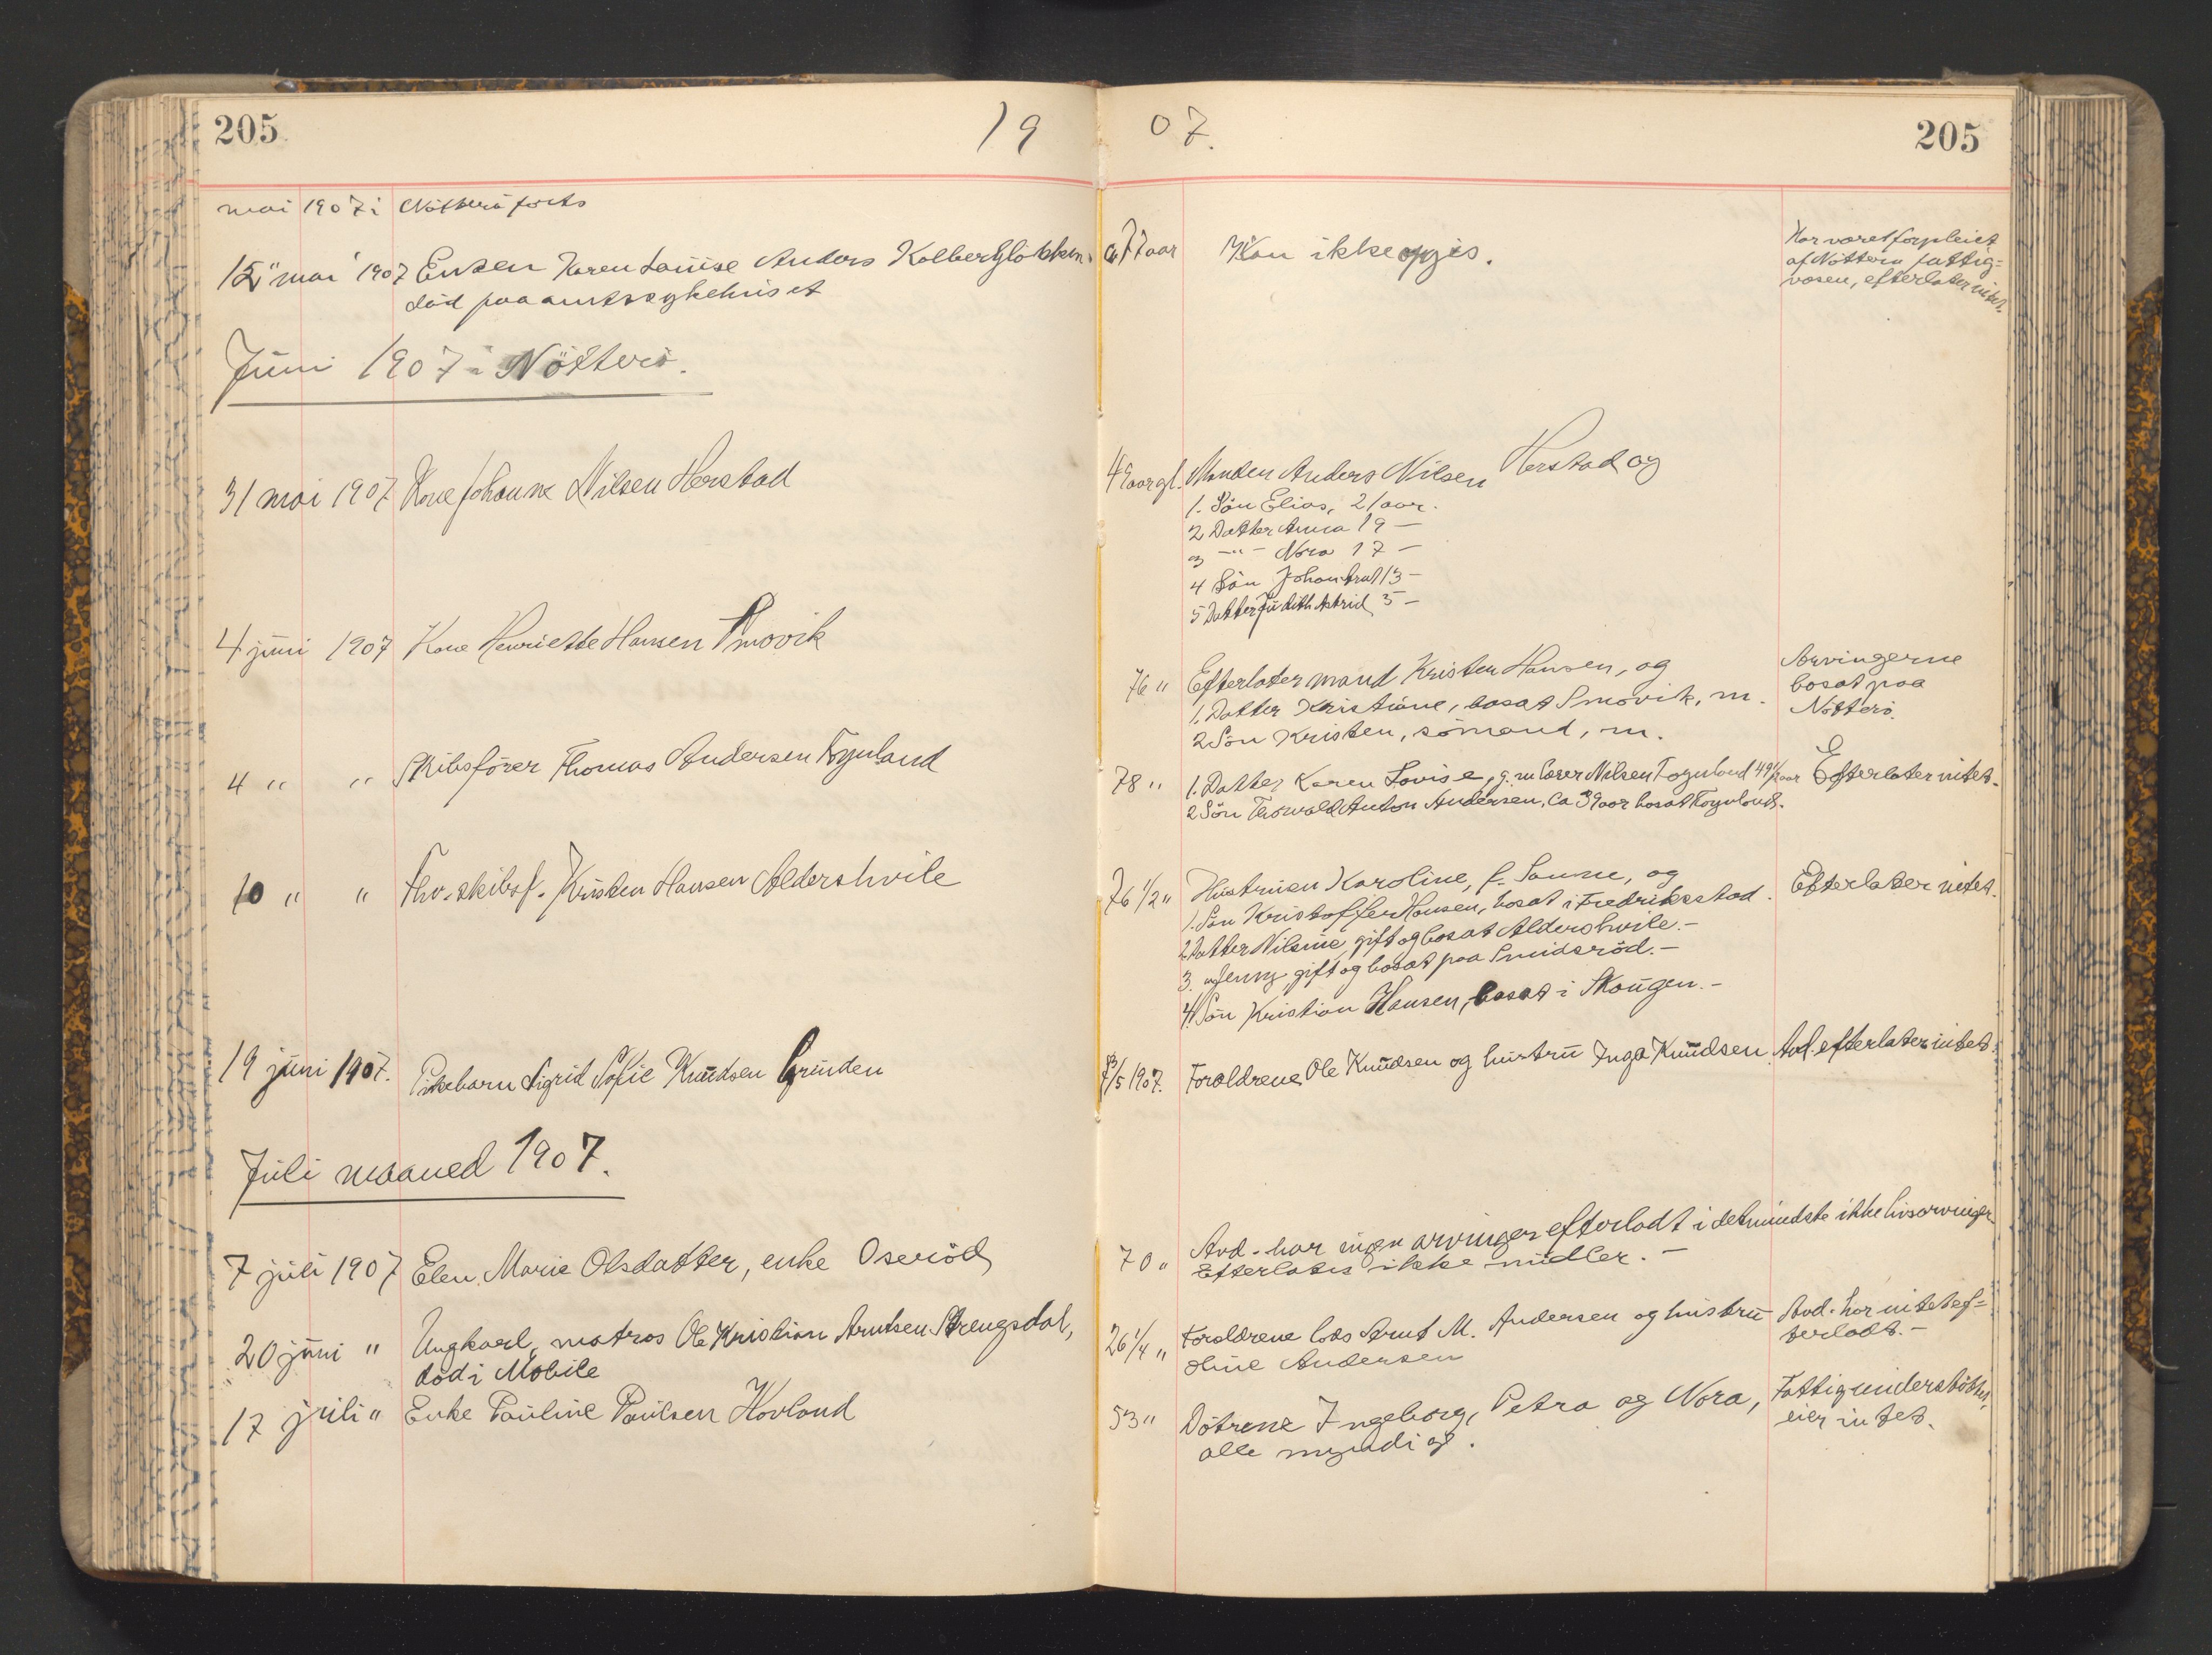 205
19
07.
205
mai 1907 i Nötterö forts
15 mai 1907 Enken Karen Louise Anders Kolbergløkken
død paa amtssykehuset
77 aar
Kan ikke opgis.
Har været forpleiet
af Nötterö fattig=
væsen, efterlater intet.
Juni 1907 i Nötterö.
31 mai 1907 Kone Johanne Nilsen Herstad
49 aar gl. Manden Anders Nilsen Herstad og
1. Sön Elias, 21 aar.
2 Datter Anna 19 —
3 —"— Nora 17 —
4 Sön Johan 13 —
5 Datter Judith Astrid 5 —
4 juni 1907 Kone Henriette Hansen Smovik
76 " Efterlater mand Kristen Hansen, og
1. Datter Kristiane, bosat Smovik, m.
2 Sön Kristen, sömand, m.
Arvingerne
bosat paa
Nötterö.
4 " " Skibsförer Thomas Andersen Föynland
78 " 1. Datter Karen Lovise, g. m Nilsen Föynland 49 1/2 aar
2 Sön Thorvald Anton Andersen, ca 39 aar bosat Föynland.
Efterlater intet.
10 " " Fhv. skibsf. Kristen Hansen Aldershvile
76 1/2 " Hustruen Karoline, f. Sanne, og
1. Sön Kristoffer Hansen, bosat i Fredriksstad.
2. Datter Nilsine, gift og bosat Aldershvile. —
3. " Jenny gift og bosat paa Smidsröd. —
4. Sön Kristian Hansen, bosat i Skougen. —
Efterlater intet.
19 juni 1907. Pikebarn Sigrid Sofie Knudsen Grinden
/5 1907. Forældrene Ole Knudsen og hustru Inga Knudsen
Avd. efterlater intet.
Juli maaned 1907.
7 juli 1907 Elen Marie Olsdatter, enke Oseröd
70 " Avd. har ingen arvinger efterladt i detmindste ikke livsarvinger
Efterlates ikke midler. —
20 juni " Ungkarl, matros Ole Kristian Arntsen Strengsdal,
död i Mobile
26 1/4 " Forældrene lods Arnt M. Andersen og hustru
Oline Andersen
Avd. har intet ef=
terladt. —
17 juli " Enke Pauline Paulsen Hovland
53 " Dötrene Ingeborg, Petra og Nora,
alle myndige.
Fattigunderstöttet,
eier intet.